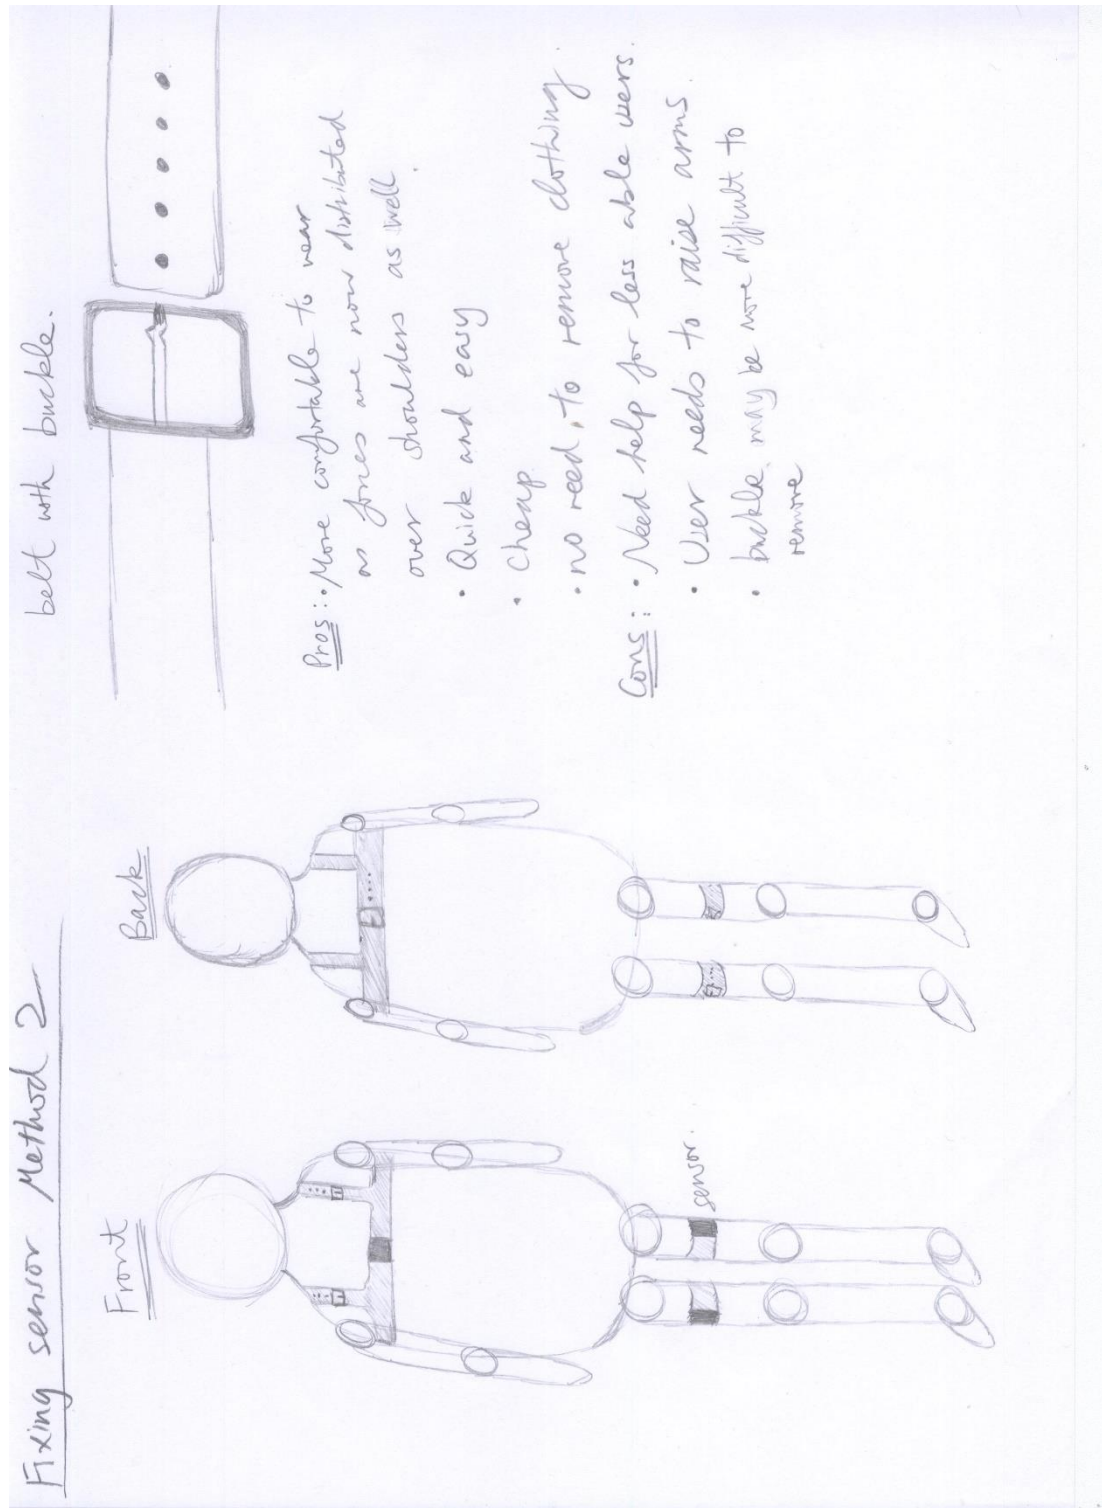 Fixing sensor Method 2
Front
Back
sensor.
belt with buckle.
Pros: • More comfortable to wear
as forces are now distributed
over shoulders as well.
• Quick and easy
• Cheap
• no need to remove clothing.
Cons: • Need help for less able users.
• User needs to raise arms
• buckle may be more difficult to
remove